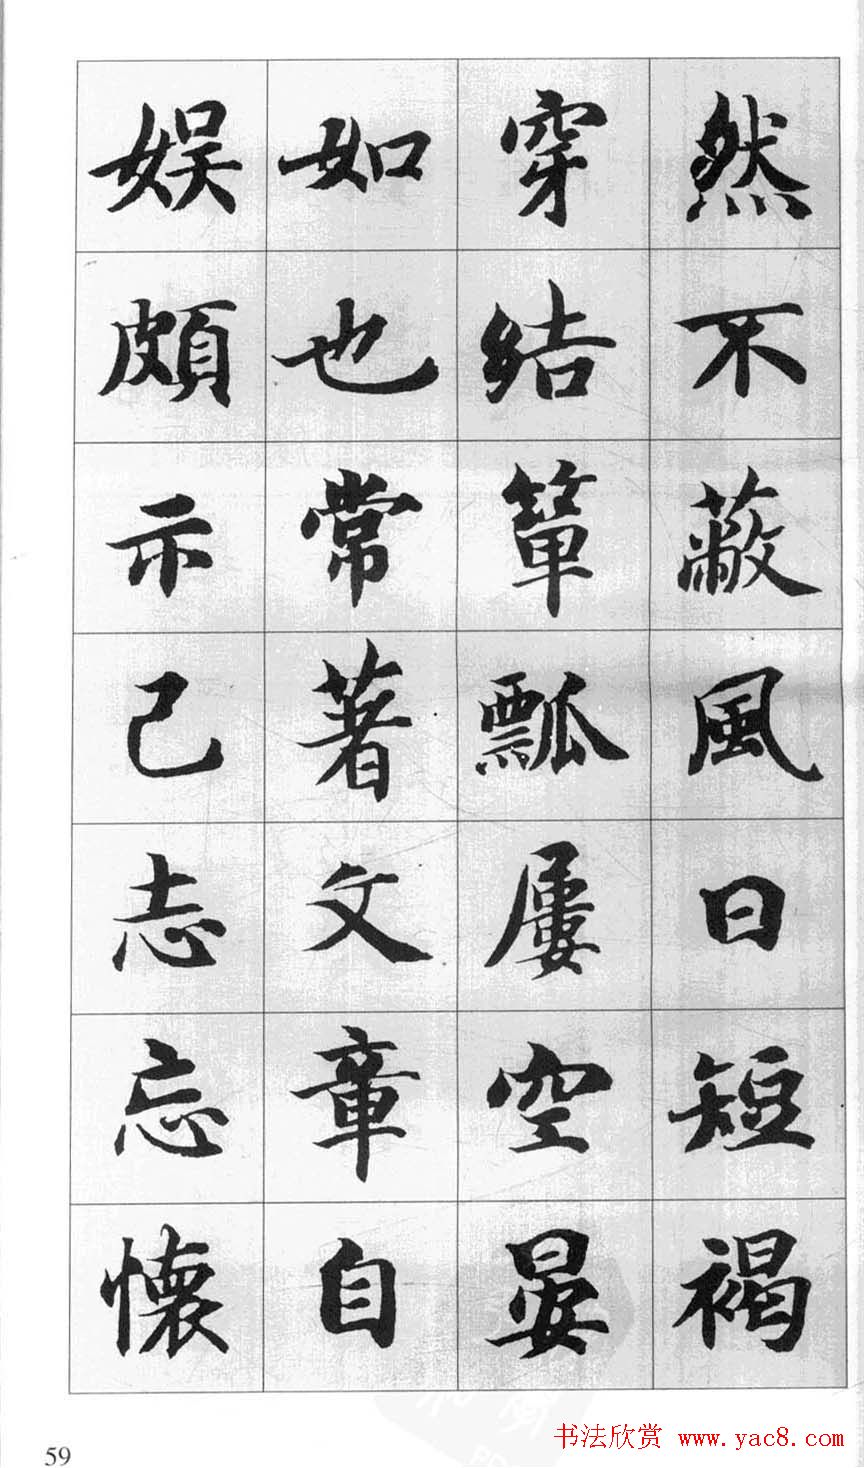 然不蔽風日短褐
穿結簞瓢屢空晏
如也常著文章自
娱頗示己志忘懷
59
书法欣赏 www.yac8.com